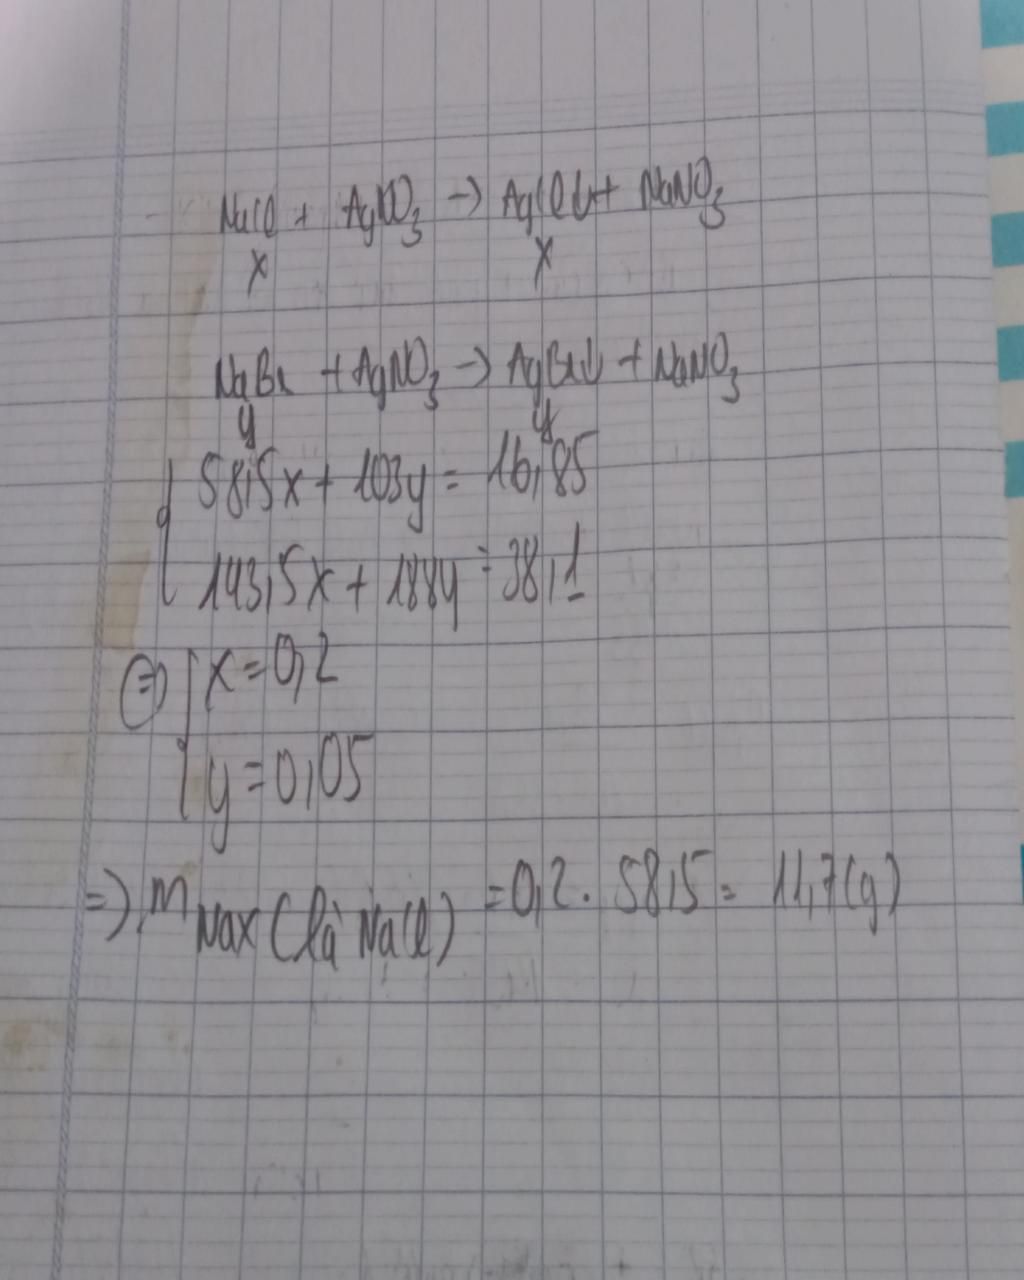 NaCl + AgNO3 → AgCl↓ + NaNO3
x x
NaBr + AgNO3 → AgBr↓ + NaNO3
y y
58,5x + 103y = 16,85
143,5x + 188y = 38,1
⇔ x = 0,2
y = 0,05
=> m NaX (là NaCl) = 0,2. 58,5 = 11,7(g)